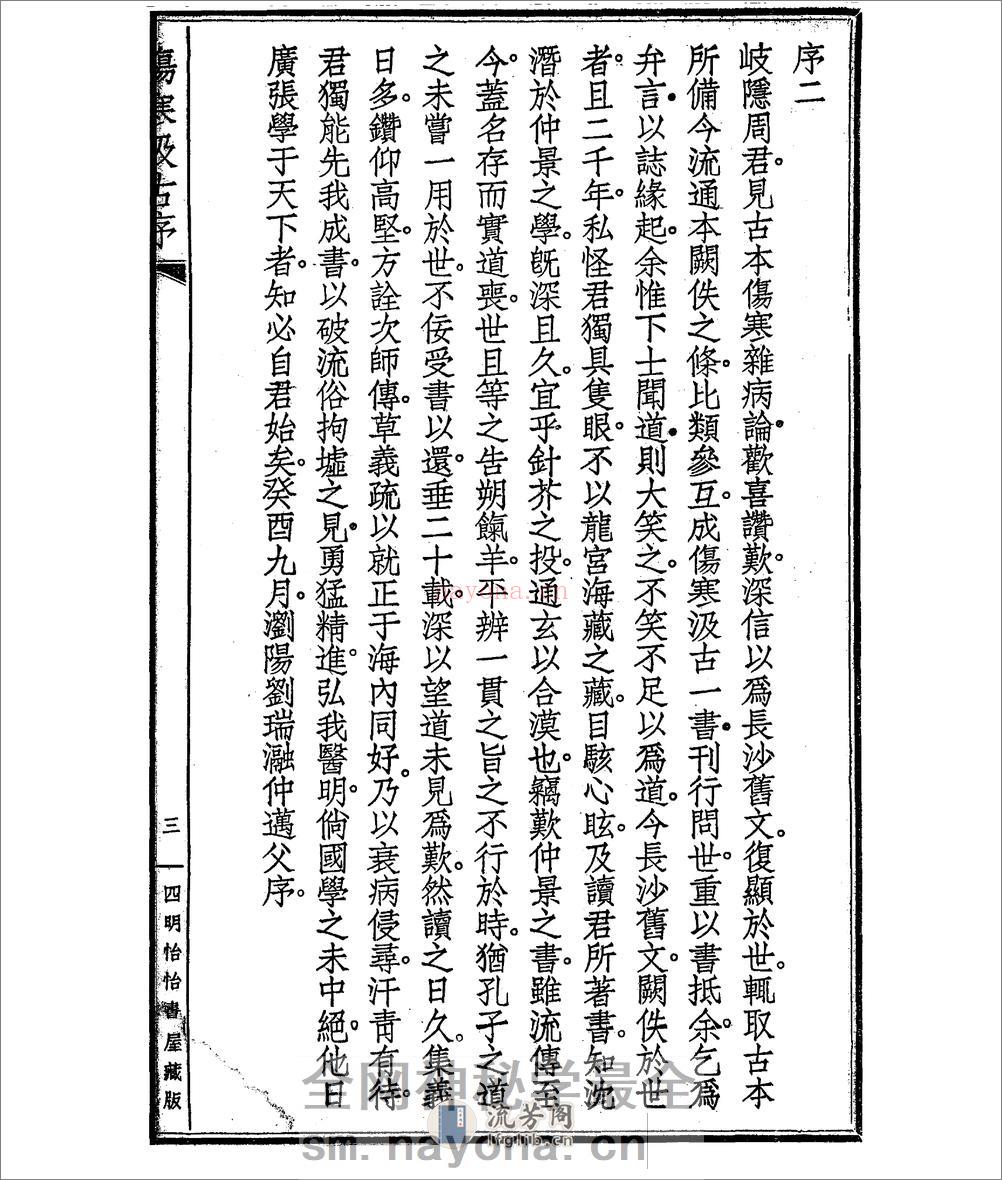 序二
岐隱周君。見古本傷寒雜病論。歡喜讚歎。深信以爲長沙舊文。復顯於世。輒取古本
所備今流通本闕佚之條。比類參互。成傷寒汲古一書。刊行問世。重以書抵余。乞爲
弁言。以誌緣起。余惟下士聞道。則大笑之。不笑不足以爲道。今長沙舊文。闕佚於世
者。且二千年。私怪君獨具隻眼。不以龍宮海藏之藏。目駭心眩。及讀君所著書。知沈
潛於仲景之學。旣深且久。宜乎針芥之投。通玄以合漠也。竊歎仲景之書。雖流傳至
今。蓋名存而實道喪。世且等之告朔餼羊。不辨一貫之旨之不行於時。猶孔子之道
之未嘗一用於世。不佞受書以還。垂二十載。深以望道未見爲歎。然讀之日久。集義
日多。鑽仰高堅。方詮次師傳。草義疏以就正于海內同好。乃以衰病侵尋。汗青有待。
君獨能先我成書。以破流俗拘墟之見。勇猛精進。弘我醫明。倘國學之未中絕。他日
廣張學于天下者。知必自君始矣。癸酉九月。瀏陽劉瑞瀜仲邁父序。
傷寒汲古序
三
四明怡怡書屋藏版
全网神秘学最全
流芳阁
lfglib.cn
sm.nayona.cn
nayona.cn